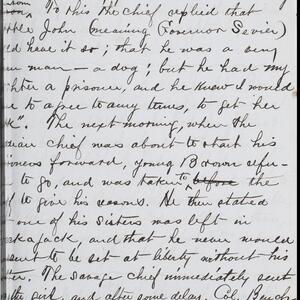 To this the chief replied that
John (meaning Governor Sevier)
have it so; that he was a
man — a dog; but he had my
a prisoner, and he knew I would
to agree to any terms, to get her
". The next morning, when the
chief was about to start his
forward, young Brown
to go, and was taken to before the
to give his reasons. He then stated
one of his sisters was left in
and that he never would
to be set at liberty without his
The savage chief immediately sent
girl, and after some delay Col.